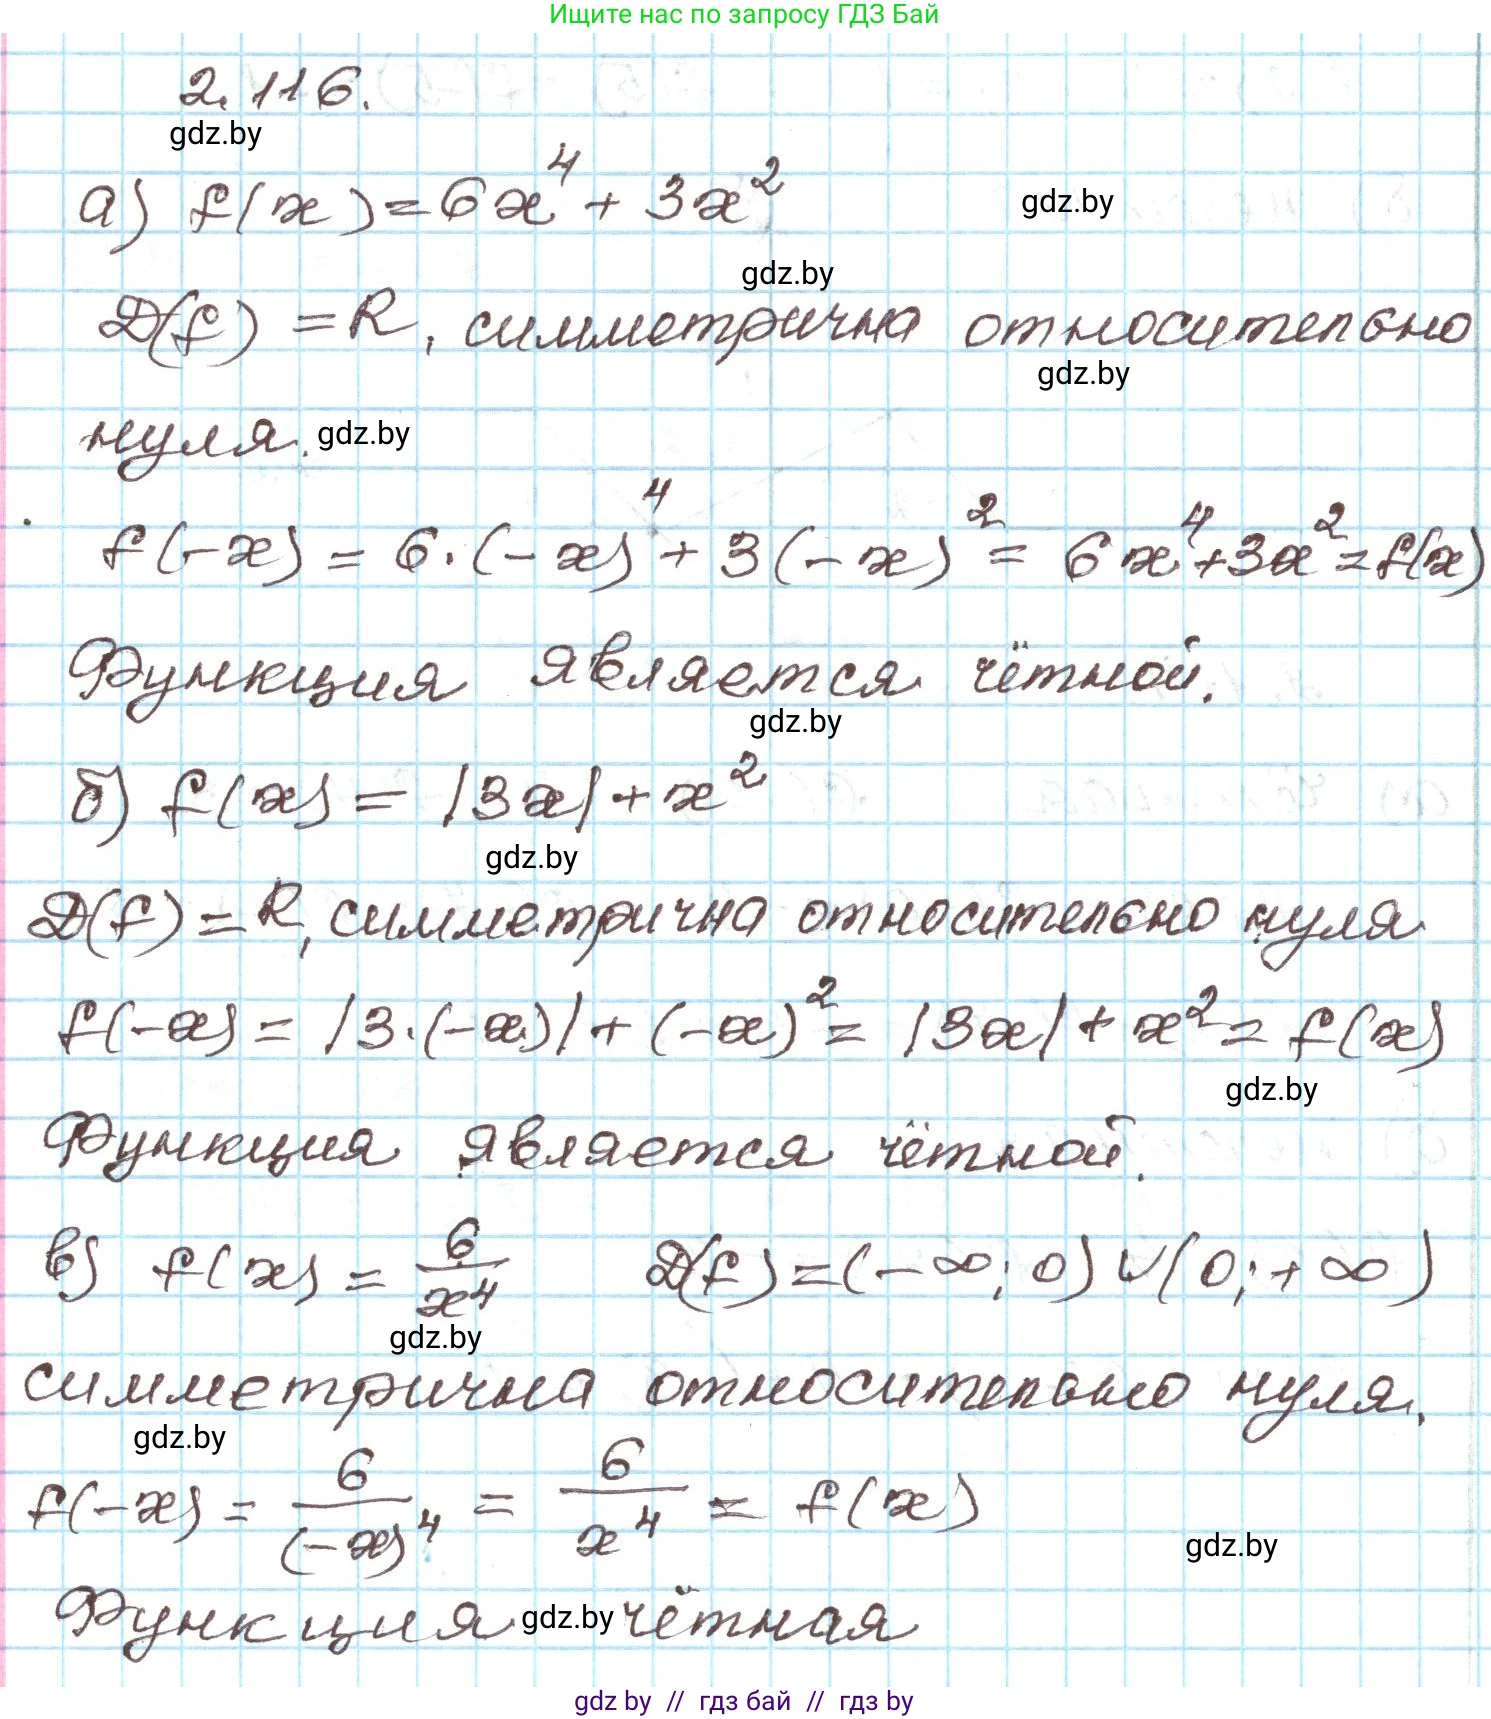 Ищите нас по запросу ГДЗ Бай
2.116.
gdz.by
а) f(x) = 6x⁴ + 3x²
gdz.by
gdz.by
D(f) = R, симметрична относительно
gdz.by
нуля. gdz.by
f(-x) = 6·(-x)⁴ + 3(-x)² = 6x⁴+3x² = f(x)
Функция является чётной.
gdz.by
б) f(x) = |3x| + x²
gdz.by
D(f) = R, симметрична относительно нуля
f(-x) = |3·(-x)| + (-x)² = |3x| + x² = f(x)
gdz.by
Функция является чётной.
в) f(x) = 6/x⁴ D(f) = (-∞; 0) ∪ (0; +∞)
gdz.by
симметрична относительно нуля.
gdz.by
f(-x) = 6/(-x)⁴ = 6/x⁴ = f(x)
gdz.by
Функция gdz.by чётная
gdz by // гдз бай // гдз by